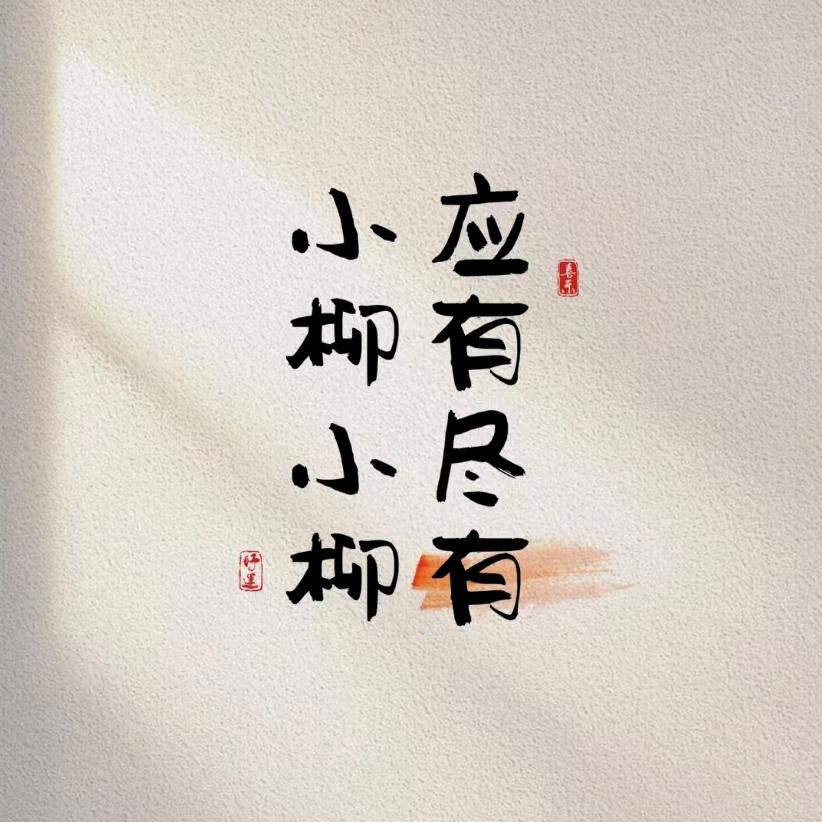 应有尽有
小柳小柳
喜乐
好运